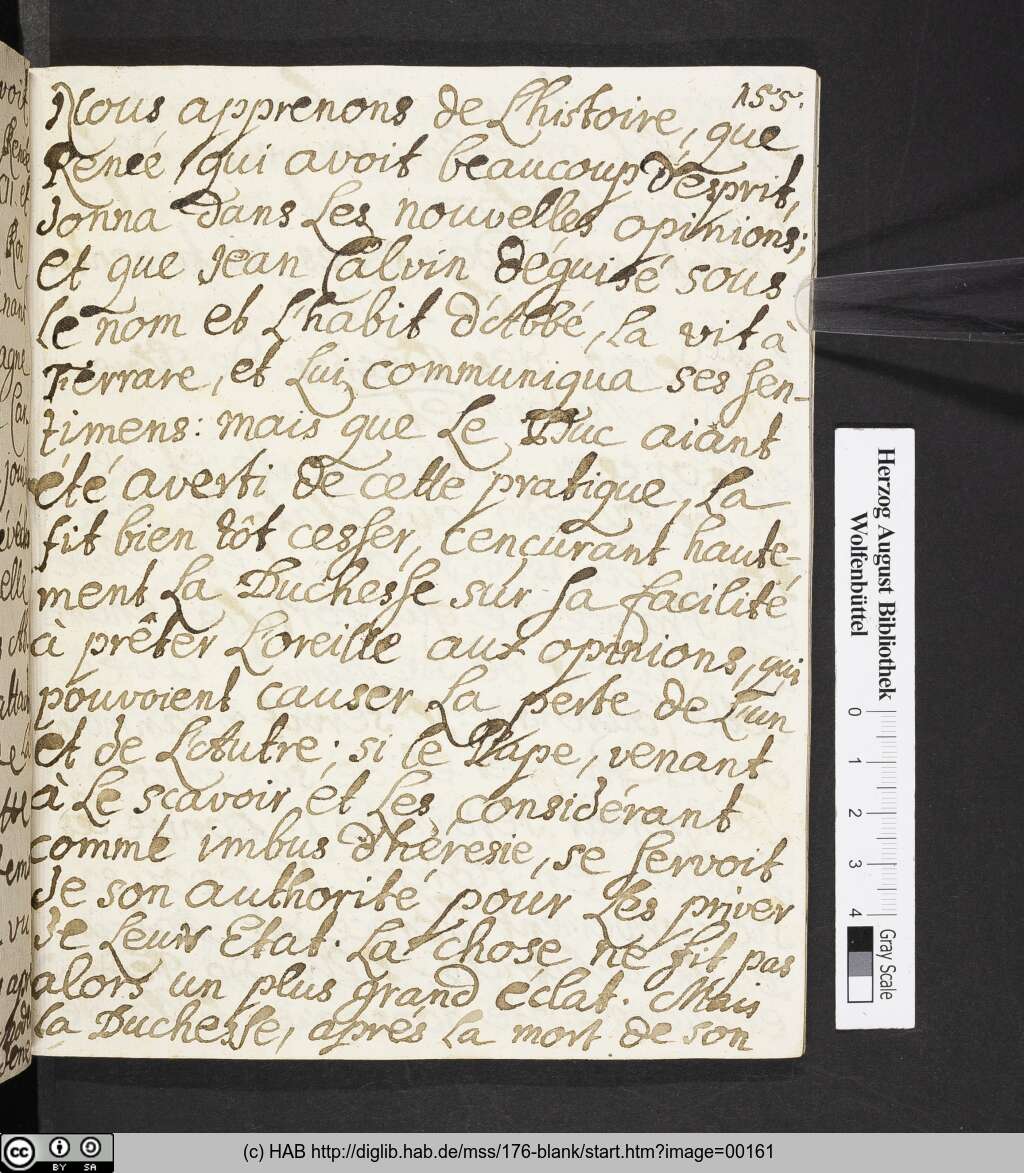 155.
Nous apprenons de L'histoire, que
Renée, qui avoit beaucoup d'esprit,
donna dans Les nouvelles opinions;
et que Jean Calvin déguisé sous
Le nom et L'habit d'Abbé, La vit à
Ferrare, et Lui communiqua ses sen-
timens: mais que Le Duc aiant
été averti de cette pratique, La
fit bien tôt cesser, cençurant haute-
ment La Duchesse sur sa facilité
à prêter L'oreille aux opinions, qui
pouvoient causer La perte de L'un
et de L'Autre; si Le Pape, venant
à Le sçavoir, et Les considérant
comme imbus d'hérésie, se servoit
de son authorité pour Les priver
de Leur Etat. La chose ne fit pas
alors un plus grand éclat. Mais
La Duchesse, aprés La mort de son
Herzog August Bibliothek
Wolfenbüttel
0 1 2 3 4
Gray Scale
cc BY SA
(c) HAB http://diglib.hab.de/mss/176-blank/start.htm?image=00161